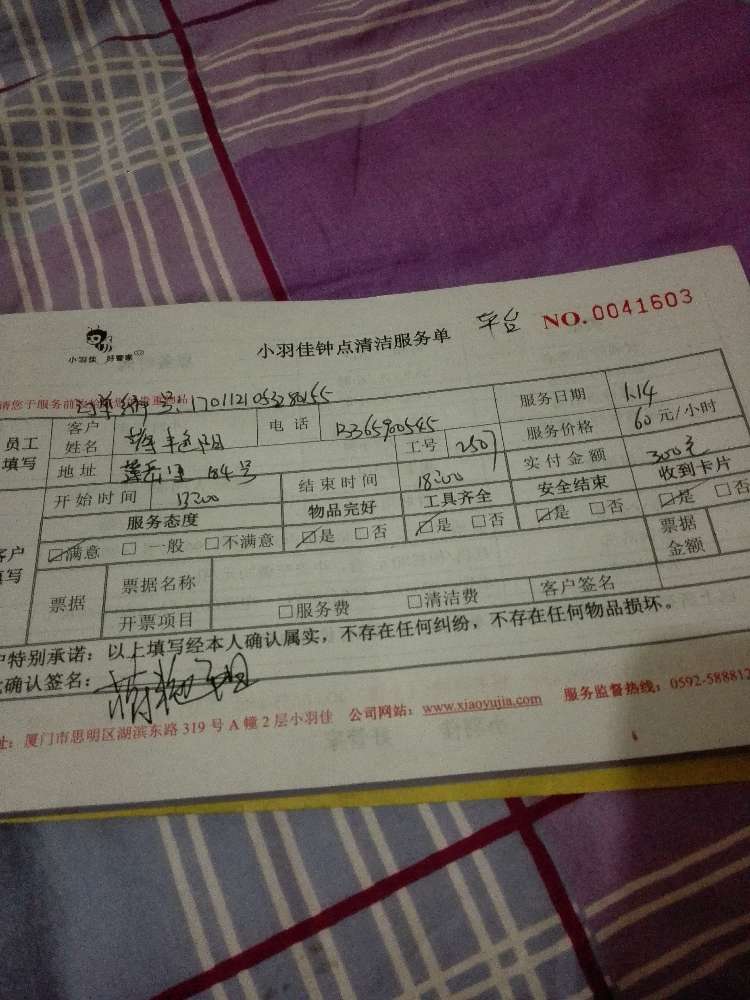 小羽佳 好管家
小羽佳钟点清洁服务单 平台 NO.0041603
请您于服务前
订单编号:
员工填写 客户姓名 电话 服务日期 1.14
地址 184号 工号 2507 服务价格 60元/小时
开始时间 结束时间 18:00 实付金额 300元
服务态度 物品完好 工具齐全 安全结束 收到卡片
客户填写 ☑满意 □一般 □不满意 ☑是 □否 ☑是 □否 ☑是 □否 ☑是 □否
票据 票据名称 票据金额
开票项目 □服务费 □清洁费 客户签名
户特别承诺：以上填写经本人确认属实，不存在任何纠纷，不存在任何物品损坏。
确认签名：
址：厦门市思明区湖滨东路319号A幢2层小羽佳 公司网站：www.xiaoyujia.com 服务监督热线：0592-588812